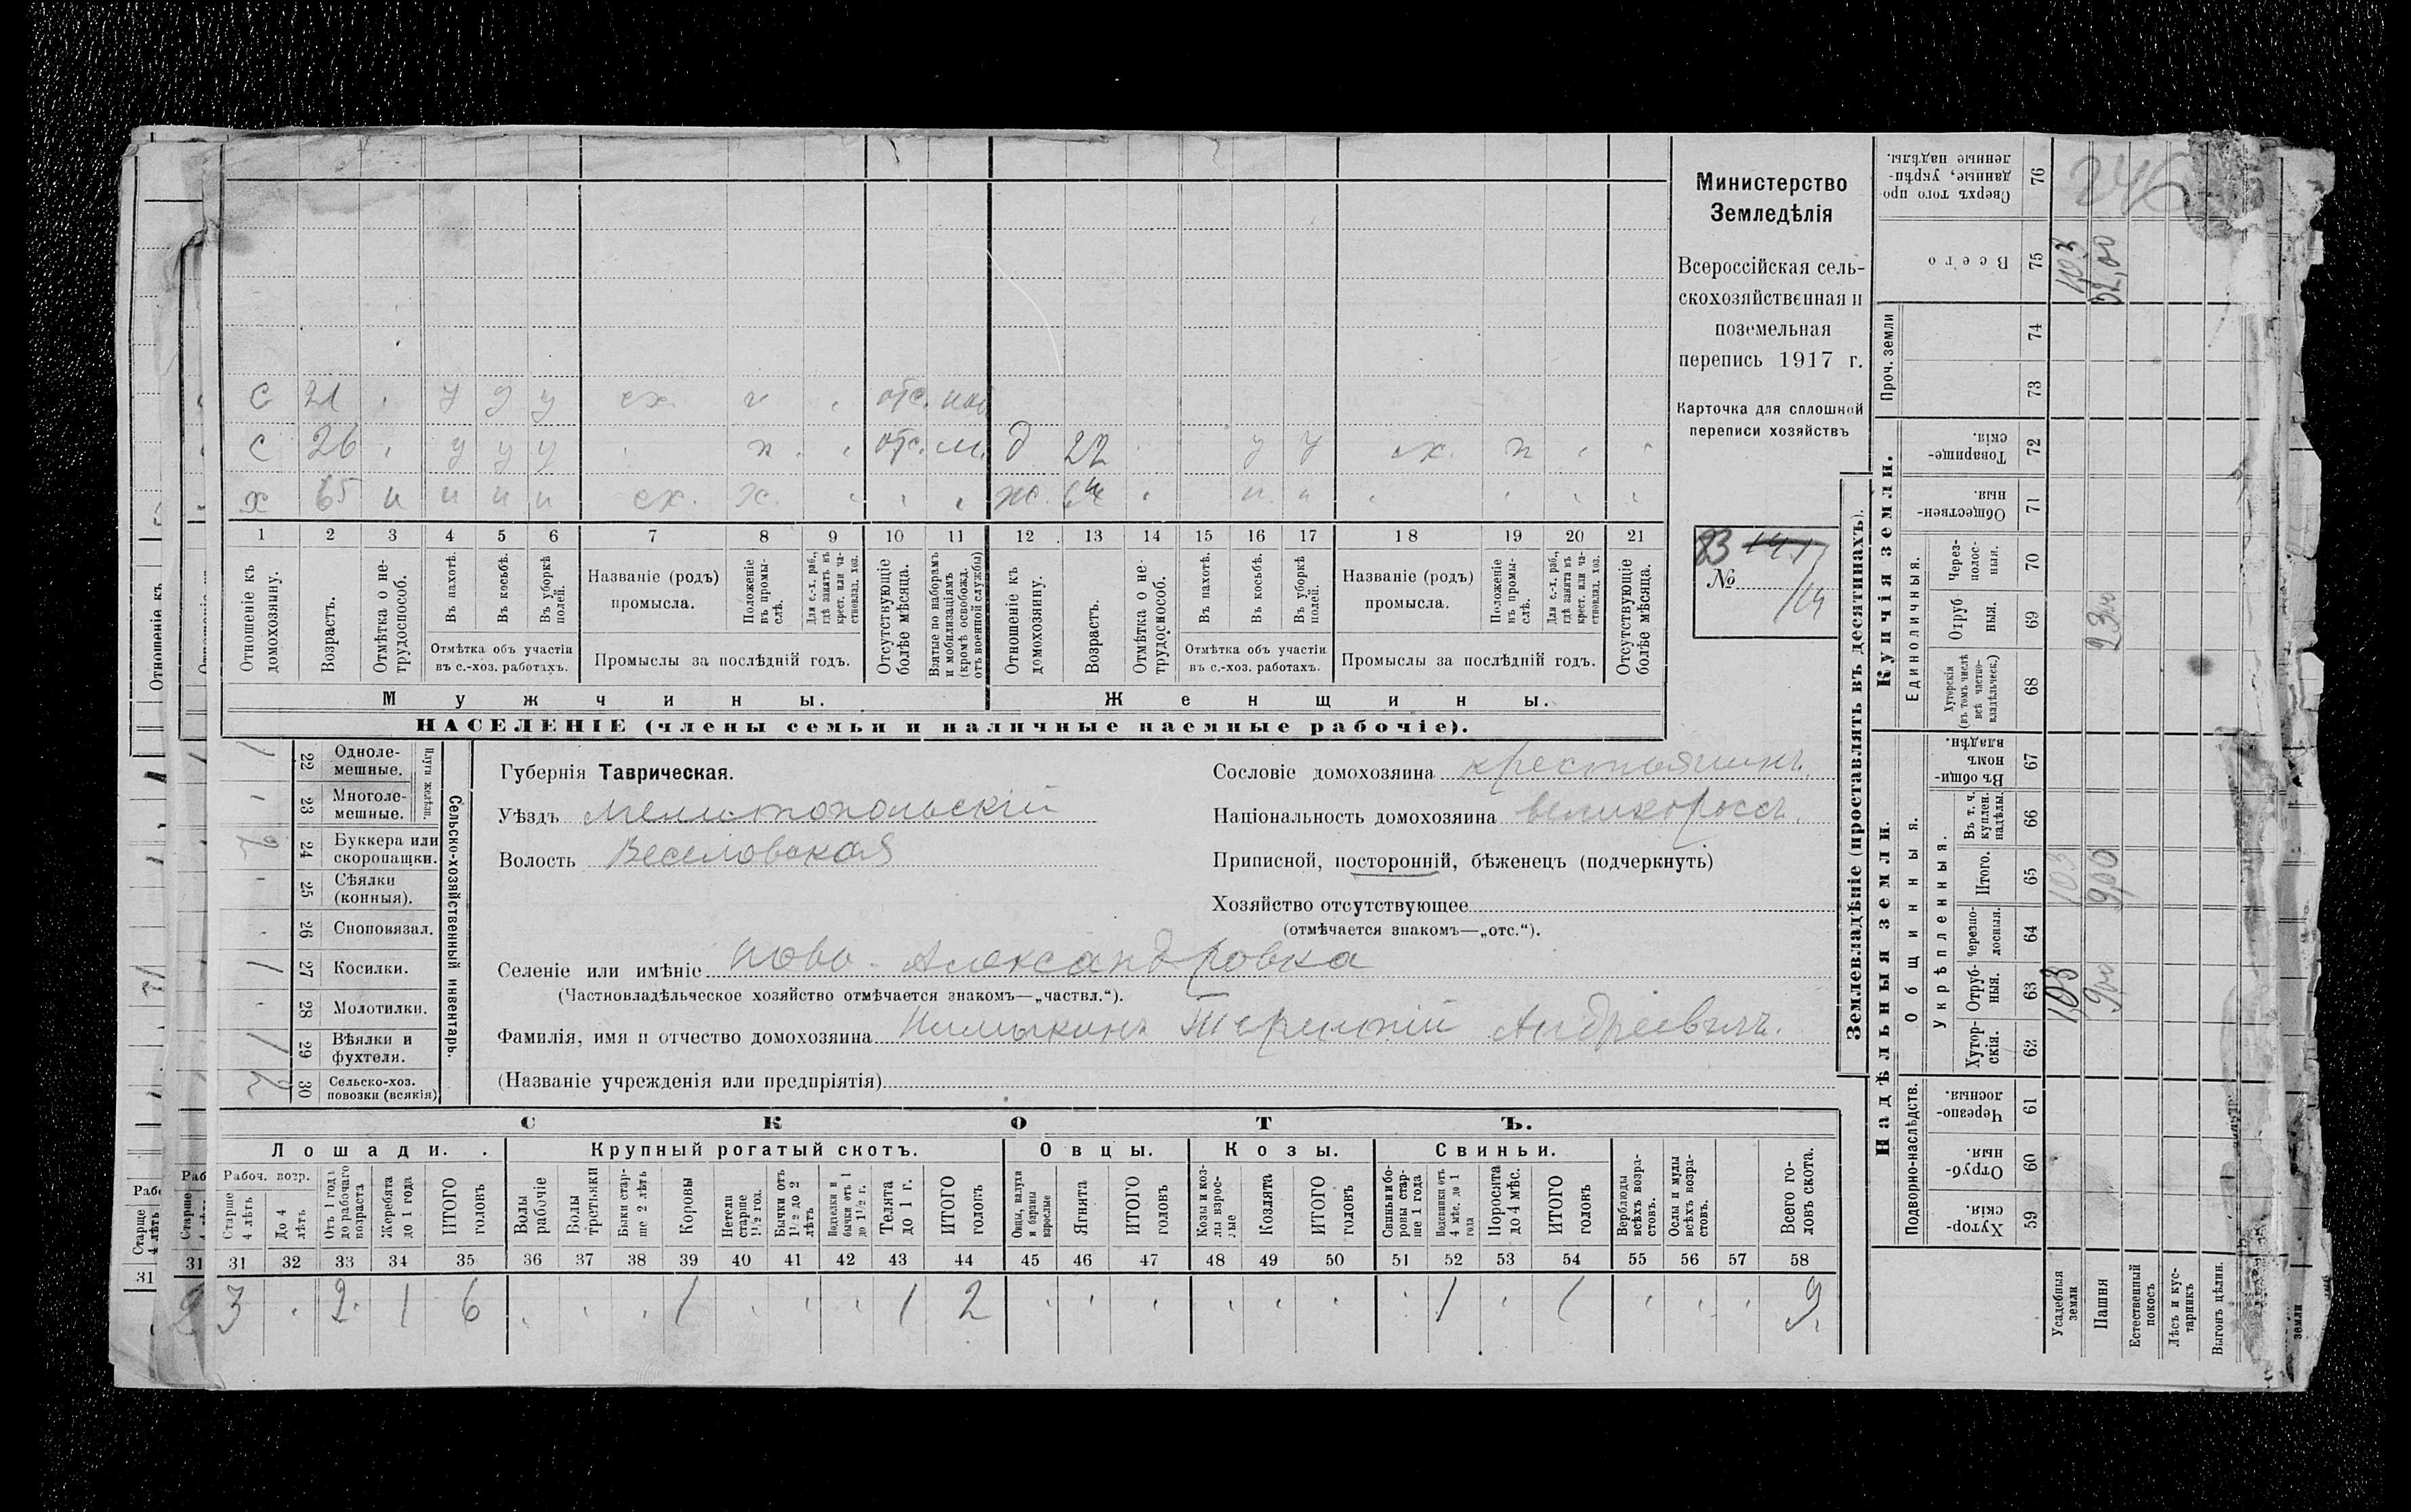 Министерство
Земледѣлія
Всероссійская сель-
скохозяйственная и
поземельная
перепись 1917 г.
Карточка для сплошной
переписи хозяйствъ
83
№
/14
С 21 у у у сх. отс.
С 26 у у у п. отс. м. д 22 у у сх. п
х 65 н н н н сх. х. ж. н. н
1 2 3 4 5 6 7 8 9 10 11 12 13 14 15 16 17 18 19 20 21
Отношеніе къ домохозяину.
Возрастъ.
Отмѣтка о не-трудоспособ.
Въ пахотѣ.
Въ косьбѣ.
Въ уборкѣ полей.
Отмѣтка объ участіи въ с.-хоз. работахъ.
Названіе (родъ) промысла.
Положеніе въ промы-слѣ.
Для с.-х. раб., гдѣ занятъ въ крест. или ча-стновлад. хоз.
Промыслы за послѣдній годъ.
Отсутствующіе болѣе мѣсяца.
Взятые по наборамъ и мобилизаціямъ (кромѣ освобожд. отъ военной службы)
Отношеніе къ домохозяину.
Возрастъ.
Отмѣтка о не-трудоспособ.
Въ пахотѣ.
Въ косьбѣ.
Въ уборкѣ полей.
Отмѣтка объ участіи въ с.-хоз. работахъ.
Названіе (родъ) промысла.
Положеніе въ промы-слѣ.
Для с.-х. раб., гдѣ занята въ крест. или ча-стновлад. хоз.
Промыслы за послѣдній годъ.
Отсутствующіе болѣе мѣсяца.
Мужчины. Женщины.
НАСЕЛЕНІЕ (члены семьи и наличные наемные рабочіе).
Сельско-хозяйственный инвентарь.
Плуги желѣзн.
22 Одноле-мешные. 1
23 Многоле-мешные. -
24 Буккера или скоропашки.
25 Сѣялки (конныя). -
26 Сноповязал.
27 Косилки. 1
28 Молотилки.
29 Вѣялки и фухтеля. 1
30 Сельско-хоз. повозки (всякія)
Губернія Таврическая.
Уѣздъ Мелитопольскій
Волость Веселовская
Селеніе или имѣніе Ново-Александровка
(Частновладѣльческое хозяйство отмѣчается знакомъ—„частвл.“).
Фамилія, имя и отчество домохозяина Терентій Андреевичъ.
(Названіе учрежденія или предпріятія)
Сословіе домохозяина крестьянинъ.
Національность домохозяина великороссъ.
Приписной, посторонній, бѣженецъ (подчеркнуть)
Хозяйство отсутствующее
(отмѣчается знакомъ—„отс.“).
СКОТЪ.
Лошади. Крупный рогатый скотъ. Овцы. Козы. Свиньи.
Рабоч. возр.
Старше 4 лѣтъ
До 4 лѣтъ
Отъ 1 года до рабочаго возраста
Жеребята до 1 года
ИТОГО головъ
Волы рабочіе
Волы третьяки
Быки стар-ше 2 лѣтъ
Коровы
Нетели старше 1½ год.
Бычки отъ 1½ до 2 лѣтъ
Подтелки и бычки отъ 1 до 1½ г.
Телята до 1 г.
ИТОГО головъ
Овцы, валухи и бараны взрослые
Ягнята
ИТОГО головъ
Козы и коз-лы взрос-лые
Козлята
ИТОГО головъ
Свиньи и бо-ровы стар-ше 1 года
Подсвинки отъ 4 мѣс. до 1 года
Поросята до 4 мѣс.
ИТОГО головъ
Верблюды всѣхъ возра-стовъ.
Ослы и мулы всѣхъ возра-стовъ.
Всего го-ловъ скота.
31 32 33 34 35 36 37 38 39 40 41 42 43 44 45 46 47 48 49 50 51 52 53 54 55 56 57 58
3 2 1 6 1 1 2 1 1 9
Землевладѣніе (проставлять въ десятинахъ).
Надѣльныя земли. Купчія земли. Проч. земли
Подворно-наслѣдств.
Общинныя.
Укрѣпленныя.
Единоличныя.
Хутор-скія. 59
Отруб-ныя. 60
Черезпо-лосныя. 61
Хутор-скія. 62
Отруб-ныя. 63
Черезпо-лосныя. 64
Итого. 65
Въ т. ч. куплен. надѣлы. 66
Въ общин-номъ владѣн. 67
Хуторскія (въ томъ числѣ всѣ частно-владѣльческ.) 68
Отруб-ныя. 69
Через-полос-ныя. 70
Обществен-ныя. 71
Товарище-скія. 72
73
74
Всего 75
Сверхъ того про-данные, укрѣп-ленные надѣлы. 76
Усадебныя земли 1,03 103 1,03
Пашня 900 900 2300 32,00
Естественный покосъ
Лѣсъ и кус-тарникъ
Выгонъ цѣлин.
246
Отношеніе къ
Старше 4 лѣтъ
31
31
земли